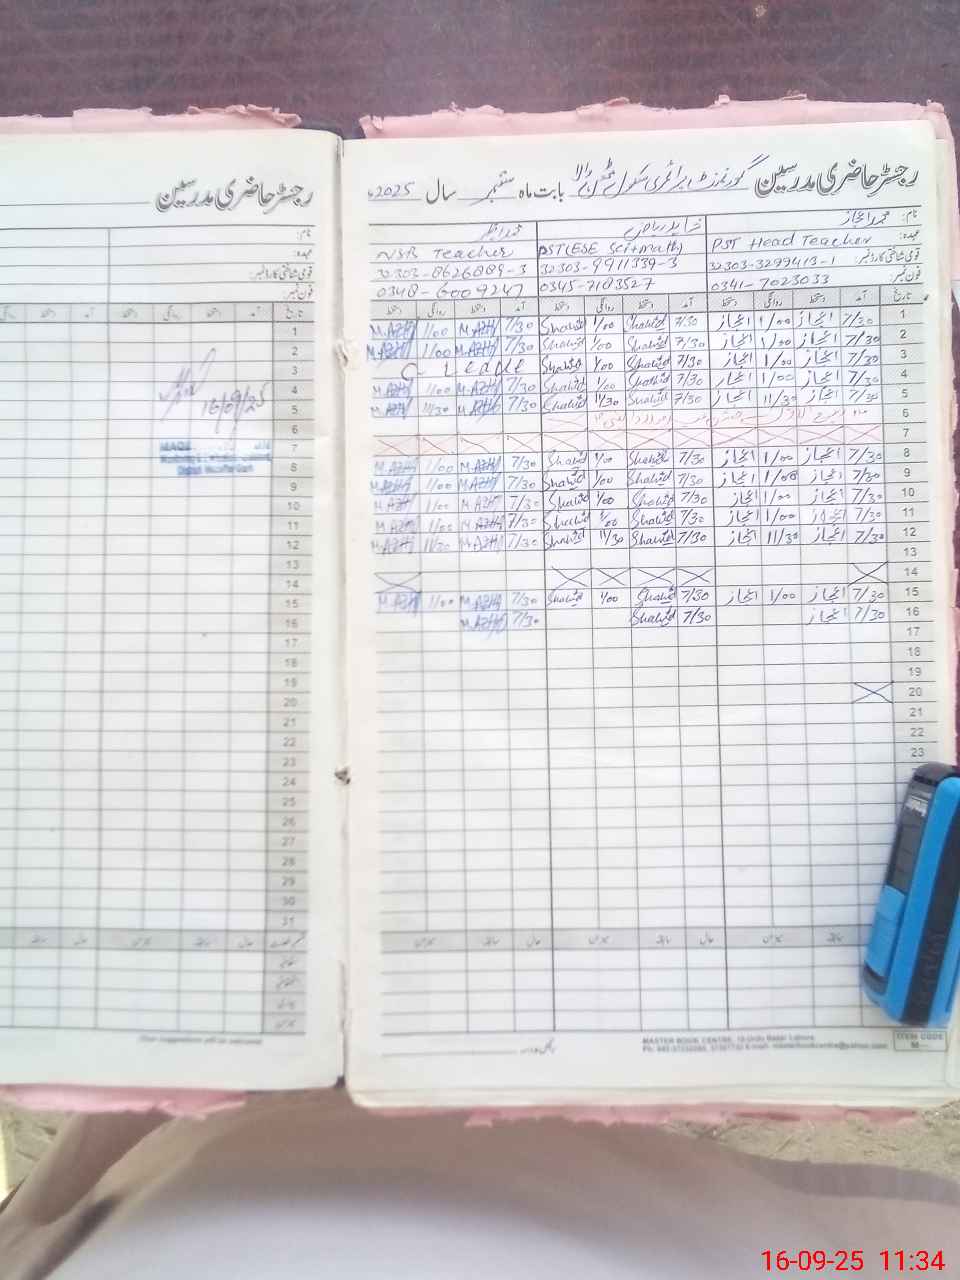 رجسٹر حاضری مدرسین
رجسٹر حاضری مدرسین گورنمنٹ پرائمری سکول بابت ماہ ستمبر سال 2025ء
نام: محمد اعجاز
عہدہ: PST Head Teacher PST(ESE Sci+Math) NSB Teacher
قومی شناختی کارڈ نمبر: 32303-3299413-1 32303-9911339-3 32303-8626889-3
فون نمبر: 0341-7023033 0345-7183527 0348-6009247
تاریخ آمد دستخط روانگی دستخط آمد دستخط روانگی دستخط آمد دستخط روانگی دستخط
1 7/30 اعجاز 1/00 اعجاز 7/30 Shahid 1/00 Shahid 7/30 M.AZHR 1/00 M.AZHR
2 7/30 اعجاز 1/00 اعجاز 7/30 Shahid 1/00 Shahid 7/30 M.AZHR 1/00 M.AZHR
3 7/30 اعجاز 1/00 اعجاز 7/30 Shahid 1/00 Shahid C Leave
4 7/30 اعجاز 1/00 اعجاز 7/30 Shahid 1/00 Shahid 7/30 M.AZHR 1/00 M.AZHR
5 7/30 اعجاز 11/30 اعجاز 7/30 Shahid 11/30 Shahid 7/30 M.AZHR 11/30 M.AZHR
6
7
8 7/30 اعجاز 1/00 اعجاز 7/30 Shahid 1/00 Shahid 7/30 M.AZHR 1/00 M.AZHR
9 7/30 اعجاز 1/00 اعجاز 7/30 Shahid 1/00 Shahid 7/30 M.AZHR 1/00 M.AZHR
10 7/30 اعجاز 1/00 اعجاز 7/30 Shahid 1/00 Shahid 7/30 M.AZHR 1/00 M.AZHR
11 7/30 اعجاز 1/00 اعجاز 7/30 Shahid 1/00 Shahid 7/30 M.AZHR 1/00 M.AZHR
12 7/30 اعجاز 11/30 اعجاز 7/30 Shahid 11/30 Shahid 7/30 M.AZHR 11/30 M.AZHR
13
14
15 7/30 اعجاز 1/00 اعجاز 7/30 Shahid 1/00 Shahid 7/30 M.AZHR 1/00 M.AZHR
16 7/30 اعجاز 7/30 Shahid 7/30 M.AZHR
17
18
19
20
21
22
23
MASTER BOOK CENTRE, 10-Urdu Bazar Lahore
ITEM CODE
نام:
عہدہ:
قومی شناختی کارڈ نمبر:
فون نمبر:
تاریخ آمد دستخط روانگی دستخط آمد دستخط
1
2
3
4
5
6
7
8
9
10
11
12
13
14
15
16
17
18
19
20
21
22
23
24
25
26
27
28
29
30
31
16/09/25
16-09-25 11:34